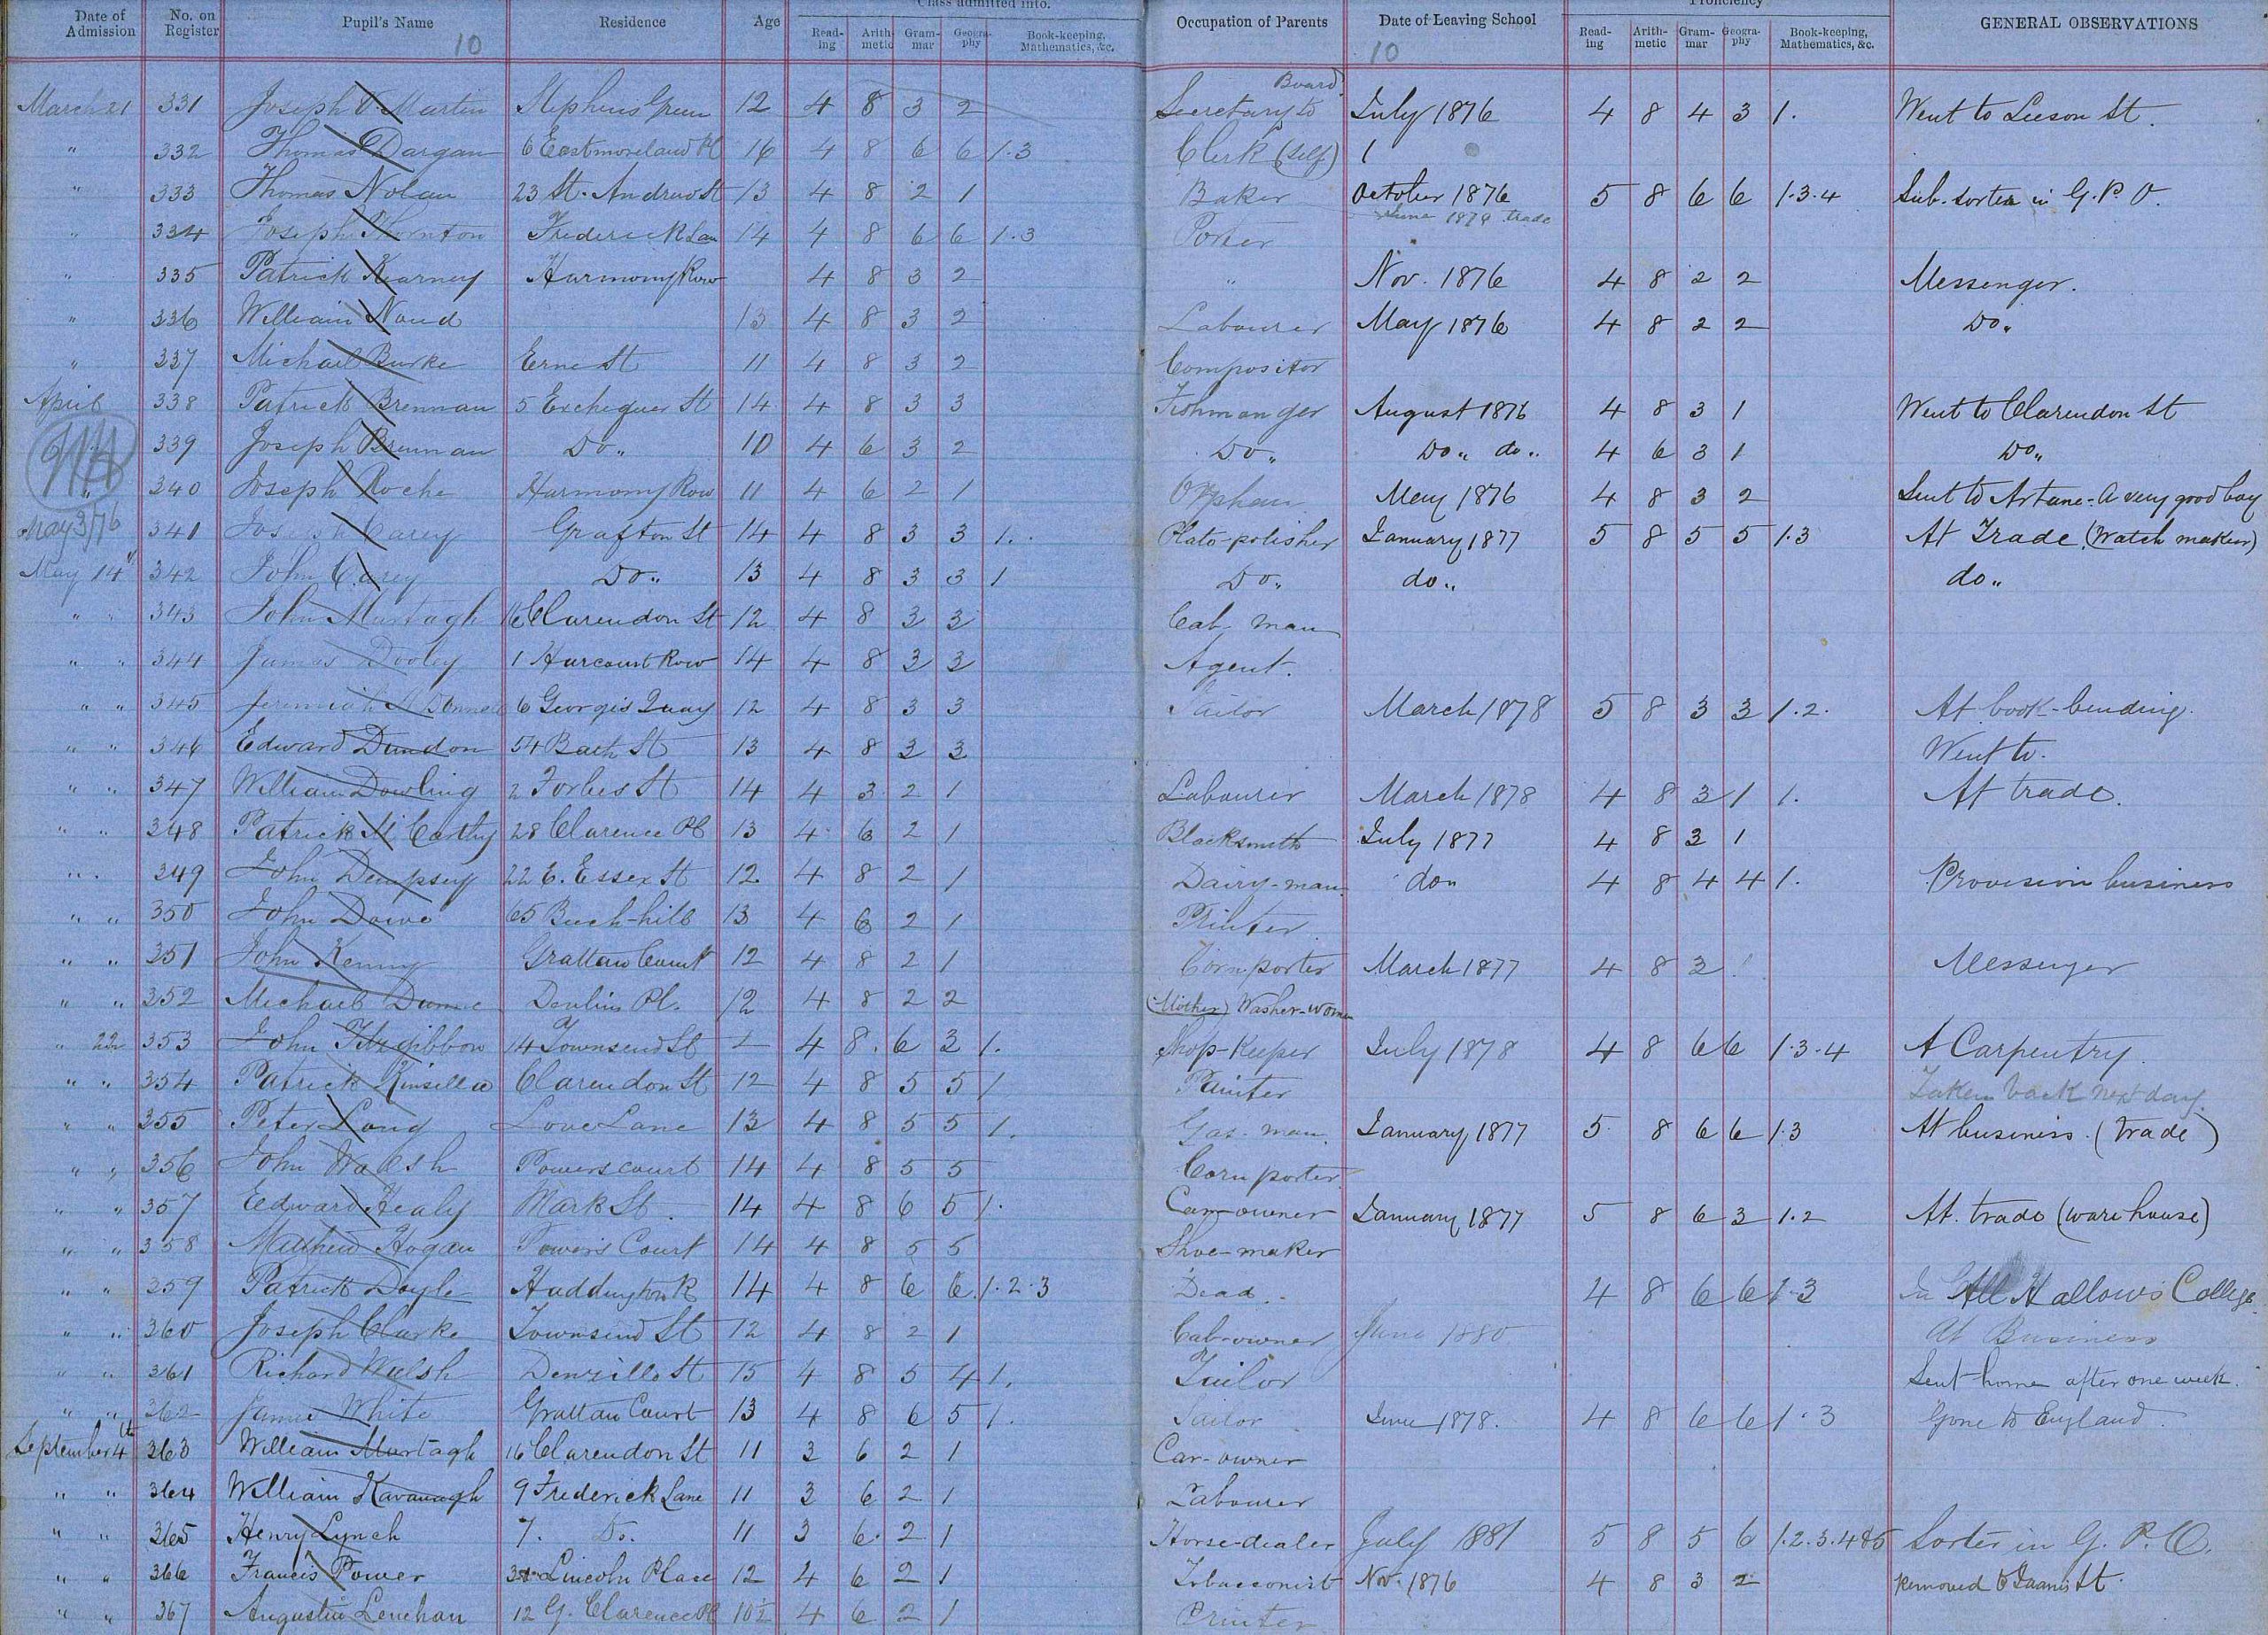 Date of Admission No. on Register Pupil's Name Residence Age Class admitted into. Read-ing Arith-metic Gram-mar Geogra-phy Book-keeping, Mathematics, &c. Occupation of Parents Date of Leaving School Proficiency Read-ing Arith-metic Gram-mar Geogra-phy Book-keeping, Mathematics, &c. GENERAL OBSERVATIONS
10 10
March 21 331 Joseph Martin Stephens Green 12 4 8 3 2 Secretary to Board July 1876 4 8 4 3 1. Went to Leeson St.
" 332 Thomas Dargan 6 Eastmoreland Pl 16 4 8 6 6 1.3 Clerk (self)
" 333 Thomas Nolan 23 St. Andrew St 13 4 8 2 1 Baker October 1876 5 8 6 6 1.3.4 Sub-sorter in G.P.O.
" 334 Joseph Thornton Frederick Lan 14 4 8 6 6 1.3 Porter June 1879 trade
" 335 Patrick Kearney Harmony Row 4 8 3 2 " Nov. 1876 4 8 2 2 Messenger.
" 336 William Naud 13 4 8 3 2 Labourer May 1876 4 8 2 2 Do.,
" 337 Michael Burke Erne St 11 4 8 3 2 Compositor
April 338 Patrick Brennan 5 Exchequer St 14 4 8 3 3 Fishmonger August 1876 4 8 3 1 Went to Clarendon St
339 Joseph Brennan Do., 10 4 6 3 2 Do., Do., do., 4 6 3 1 Do.,
" 340 Joseph Roche Harmony Row 11 4 6 2 1 Orphan May 1876 4 8 3 2 Sent to Artane. A very good boy
May 3/76 341 Joseph Carey Grafton St 14 4 8 3 3 1. Plate-polisher January 1877 5 8 5 5 1.3 At Trade (Watch maker)
May 14 342 John Carey Do., 13 4 8 3 3 1 Do., do., do.,
" " 343 John Murtagh 16 Clarendon St 12 4 8 3 3 Cab-man
" " 344 James Dooley 1 Harcourt Row 14 4 8 3 3 Agent.
" " 345 Jeremiah 6 Georgis Quay 12 4 8 3 3 Tailor March 1878 5 8 3 3 1.2. At book-bending.
" " 346 Edward Dundon 54 Bath St 13 4 8 3 3 Went to.
" " 347 William Dowling 2 Forbes St 14 4 3 2 1 Labourer March 1878 4 8 3 1 1. At trade.
" " 348 Patrick McCarthy 28 Clarence Pl 13 4 6 2 1 Blacksmith July 1877 4 8 3 1
" " 349 John Dempsey 22 E. Essex St 12 4 8 2 1 Dairy-man do., 4 8 4 4 1. Provision business
" " 350 John 65 13 4 6 2 1 Printer
" " 351 John Kenny Grattan Court 12 4 8 2 1 Corn-porter March 1877 4 8 3 Messenger
" " 352 Michael Dunne Pl. 12 4 8 2 2 (Mother) Washer-woman
" 22 353 John Fitzgibbon 14 Townsend St 4 8 6 3 1. Shop-Keeper July 1878 4 8 6 6 1.3.4 A Carpentry.
" " 354 Patrick Kinsella Clarendon St 12 4 8 5 5 1 Painter Taken back next day.
" " 355 Peter Long Love Lane 13 4 8 5 5 1. Gas-man January 1877 5 8 6 6 1.3 At business. (trade)
" " 356 John Walsh Powerscourt 14 4 8 5 5 Corn porter
" " 357 Edward Healy Mark St. 14 4 8 6 5 1. Car-owner January 1877 5 8 6 3 1.2 At trade (warehouse)
" " 358 Mathew Hogan Powers Court 14 4 8 5 5 Shoe-maker
" " 359 Patrick Doyle Haddington R 14 4 8 6 6 1.2.3 Dead. 4 8 6 6 1.3 In All Hallows College
" " 360 Joseph Clarke Townsend St 12 4 8 2 1 Cab-owner June 1880 At Business
" " 361 Richard Walsh Denzille St 15 4 8 5 4 1. Tailor Sent home after one week.
" " 362 James White Grattan Court 13 4 8 6 5 1. Tailor June 1878. 4 8 6 6 1.3 Gone to England.
September 4th 363 William Murtagh 16 Clarendon St 11 3 6 2 1 Car-owner
" " 364 William Kavanagh 9 Frederick Lane 11 3 6 2 1 Labourer
" " 365 Henry Lynch 7. Do. 11 3 6 2 1 Horse-dealer July 1881 5 8 5 6 1.2.3.4&5 Sorter in G.P.O.
" " 366 Francis Power Lincoln Place 12 4 6 2 1 Tobacconist Nov. 1876 4 8 3 2 Removed to St.
" " 367 Augustin Lenehan 12 G. Clarence Pl 10½ 4 6 2 1 Printer